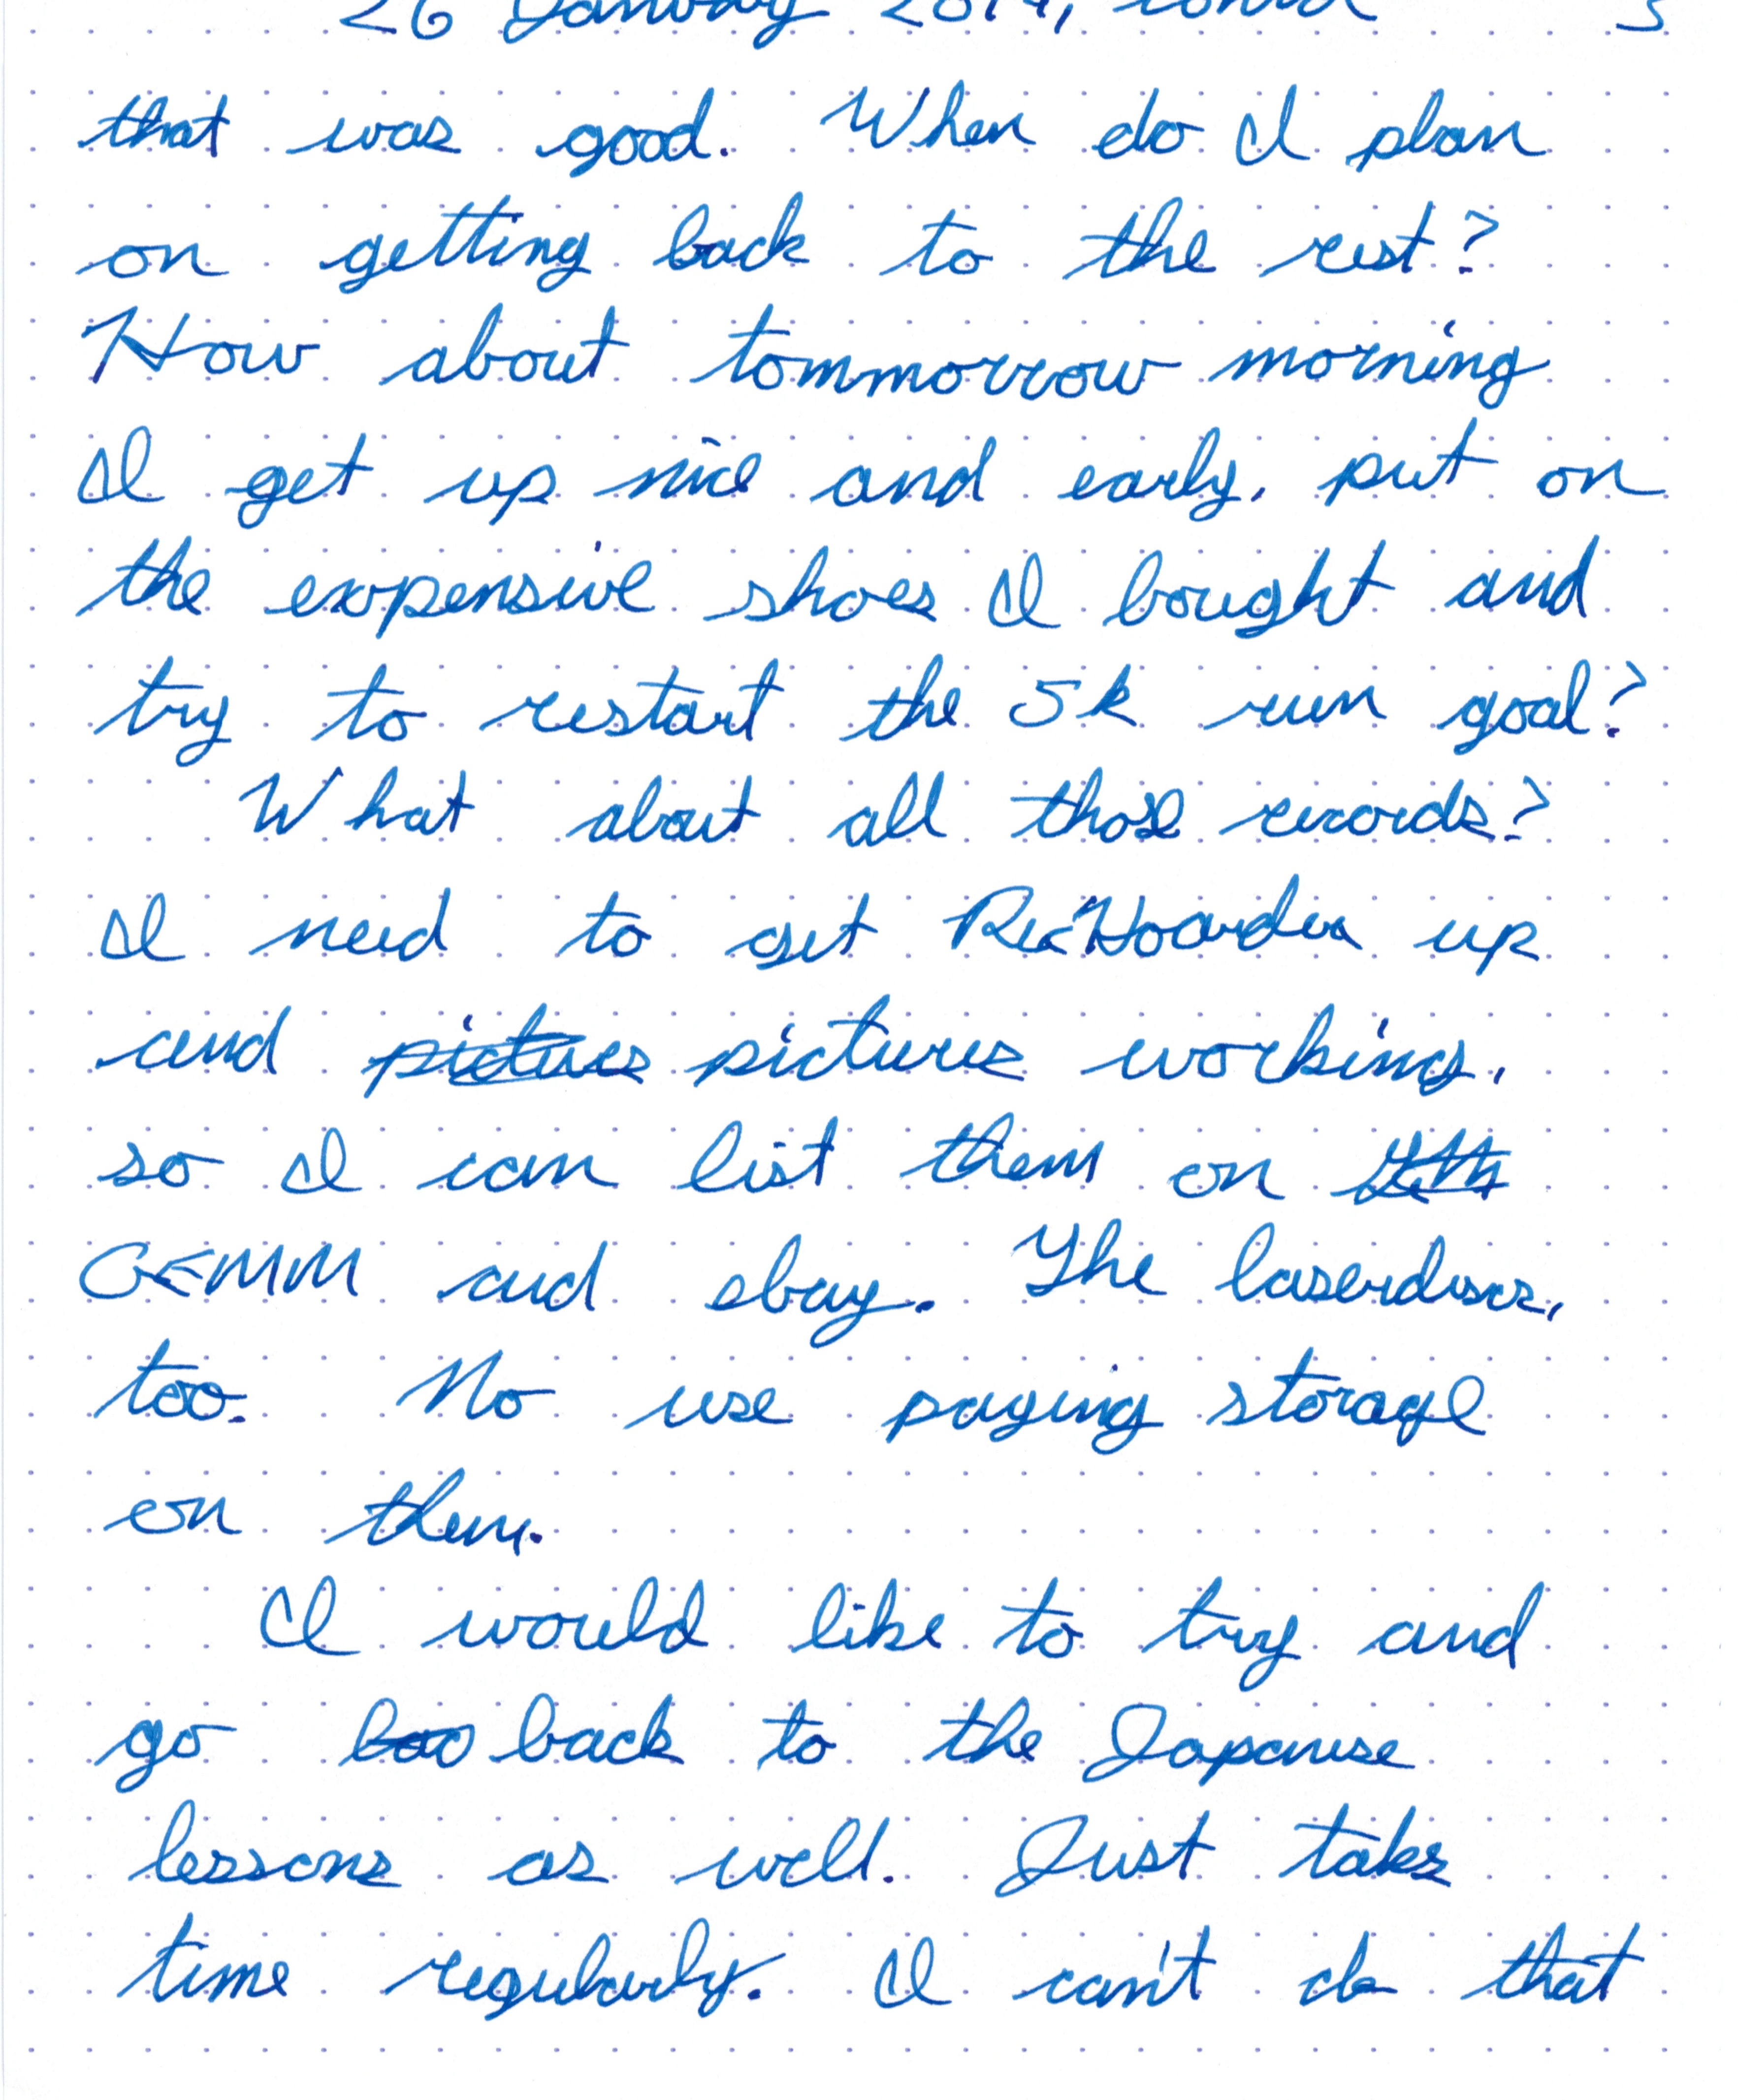 26 January 2014, cont'd 3
that was good. When do I plan
on getting back to the rest?
How about tommorrow morning
I get up nice and early, put on
the expensive shoes I bought and
try to restart the 5k run goal?
What about all those records?
I need to get RecHoarder up
and pictures pictures working,
so I can list them on
GEMM and ebay. The laserdiscs,
too. No use paying storage
on them.
I would like to try and
go back to the Japanese
lessons as well. Just take
time regularly. I can't do that